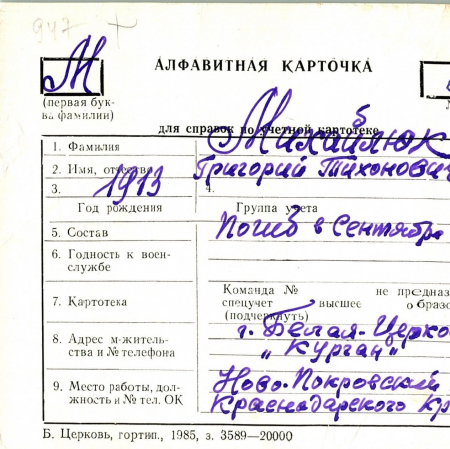 947 +
М
АЛФАВИТНАЯ КАРТОЧКА
(первая бук-
ва фамилии)
для справок по учетной картотеке
1. Фамилия Михайлюк
2. Имя, отчество Григорий Тихонович
3. 1913 4.
Год рождения Группа учета
5. Состав Погиб в Сентябре
6. Годность к воен-
службе
Команда № не предназ
7. Картотека спецучет высшее образо
(подчеркнуть)
8. Адрес м-житель- г. Белая-Церко
ства и № телефона „Курган"
9. Место работы, дол- Ново-Покровский
жность и № тел. ОК Краснадарского кр
Б. Церковь, гортип., 1985, з. 3589—20000